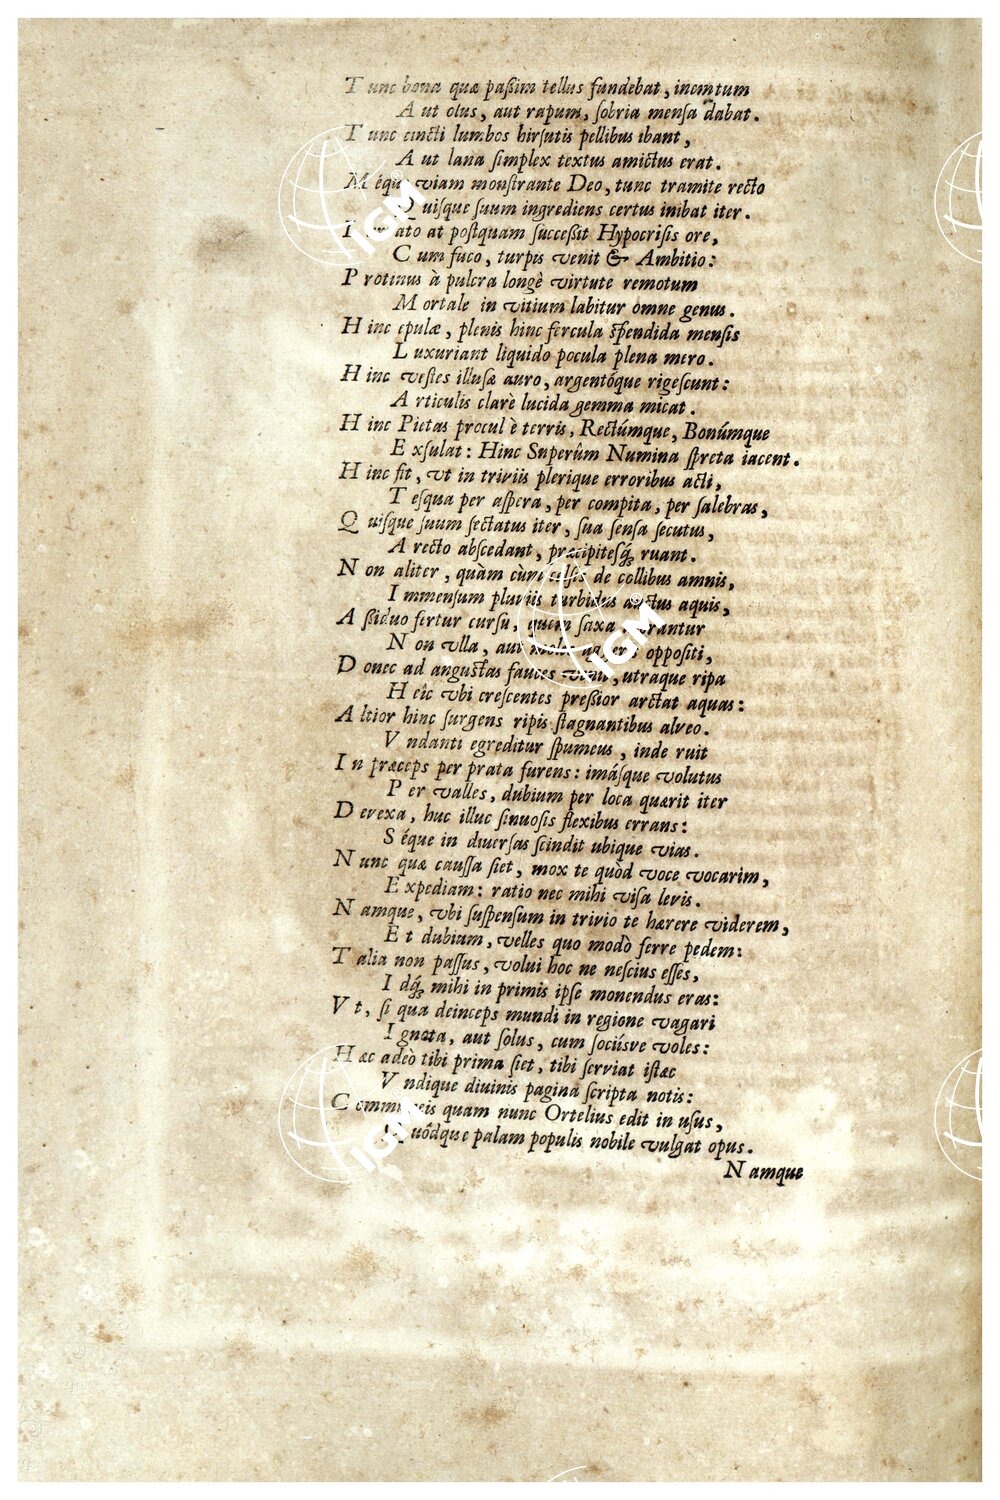 Tunc bona quæ paßim tellus fundebat, inemtum
Aut olus, aut rapum, ſobria menſa dabat.
Tunc cincti lumbos hirſutis pellibus ibant,
Aut lana ſimplex textus amictus erat.
Méque viam monſtrante Deo, tunc tramite recto
Quiſque ſuum ingrediens certus inibat iter.
at poſtquam ſucceßit Hypocriſis ore,
Cum fuco, turpis venit & Ambitio:
Protinus à pulcra longè virtute remotum
Mortale in vitium labitur omne genus.
Hinc epulæ, plenis hinc fercula ſpendida menſis
Luxuriant liquido pocula plena mero.
Hinc veſtes illuſæ auro, argentóque rigeſcunt:
Articulis clarè lucida gemma micat.
Hinc Pietas procul è terris, Rectúmque, Bonúmque
Exſulat: Hinc Superûm Numina ſpreta iacent.
Hinc fit, vt in triviis plerique erroribus acti,
Teſqua per aſpera, per compita, per ſalebras,
Quiſque ſuum ſectatus iter, ſua ſenſa ſecutus,
A recto abſcedant, præcipiteſq́; ruant.
Non aliter, quàm cùm celſis de collibus amnis,
Immenſum pluviis turbidus auctus aquis,
Aßiduo fertur curſu, quem ſaxa morantur
Non vlla, aut moles aggeris oppoſiti,
Donec ad anguſtas fauces , utraque ripa
Heîc vbi creſcentes preßior arctat aquas:
Altior hinc ſurgens ripis ſtagnantibus alveo.
Vndanti egreditur ſpumeus, inde ruit
In præceps per prata furens: imáſque volutus
Per valles, dubium per loca quærit iter
Devexa, huc illuc ſinuoſis flexibus errans:
Séque in diuerſas ſcindit ubique vias.
Nunc quæ cauſſa ſiet, mox te quòd voce vocarim,
Expediam: ratio nec mihi viſa levis.
Namque, vbi ſuſpenſum in trivio te hærere viderem,
Et dubium, velles quo modò ferre pedem:
Talia non paſſus, volui hoc ne neſcius eſſes,
Idq́; mihi in primis ipſe monendus eras:
Vt, ſi qua deinceps mundi in regione vagari
Ignota, aut ſolus, cum ſociíſve voles:
Hæc adeò tibi prima ſiet, tibi ſerviat iſtæc
Vndique diuinis pagina ſcripta notis:
Communeis quam nunc Ortelius edit in uſus,
Quôdque palam populis nobile vulgat opus.
Namque
IGM
IGM
IGM